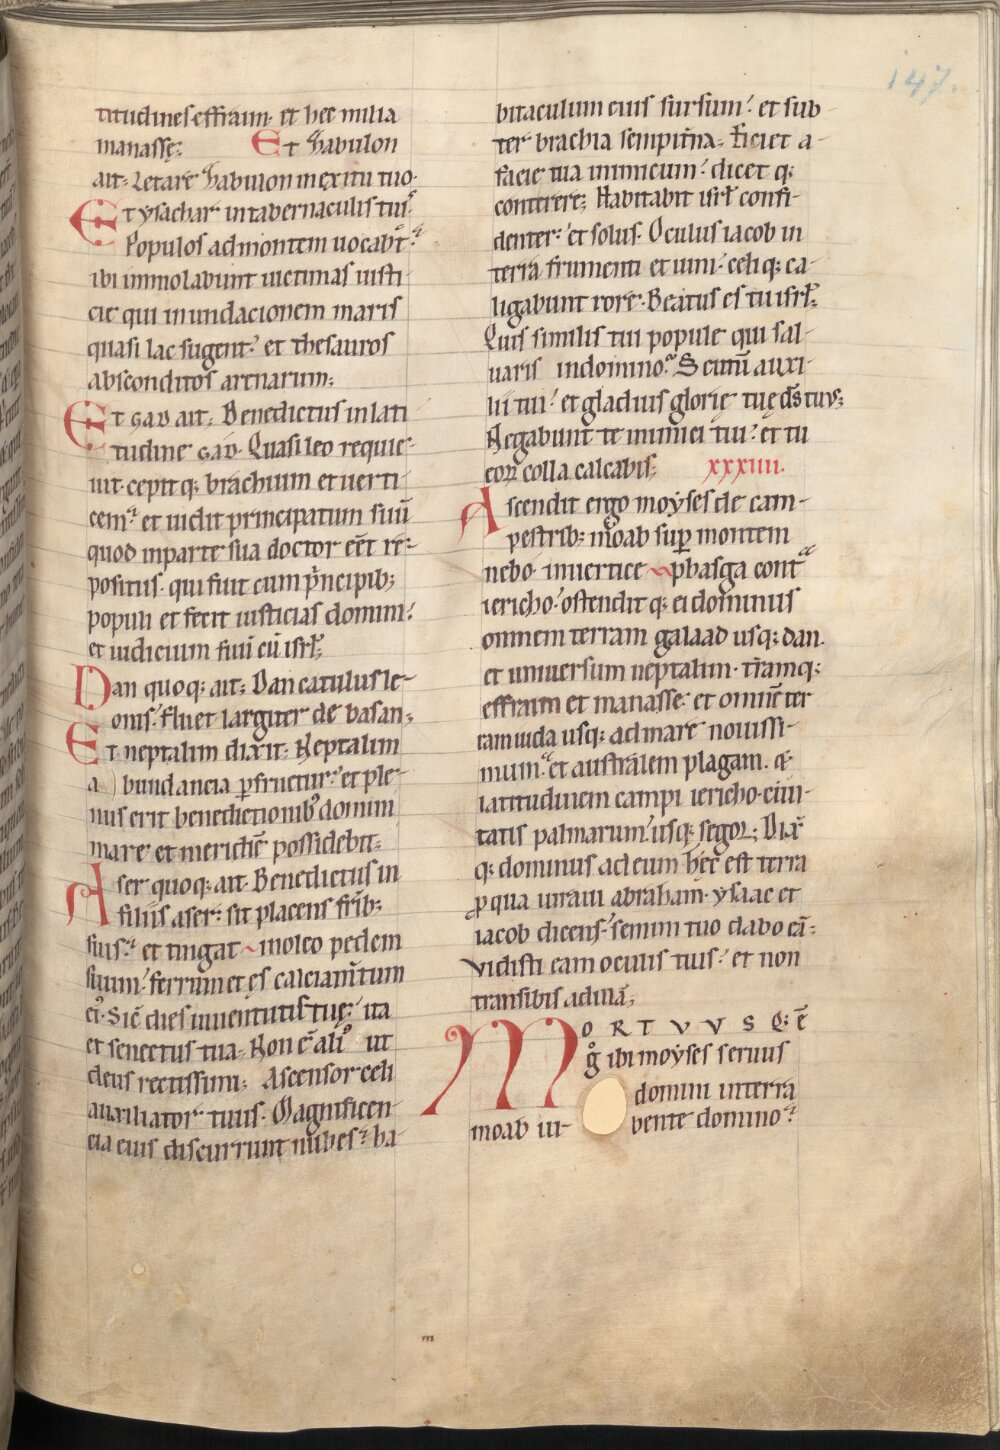 147.
titudines effraim. et hec milia
manassę; Et zabulon
ait; Letare zabulon in exitu tuo.
Et ysachar in tabernaculis tuis.
Populos ad montem uocabt̄.
ibi immolabunt uictimas iusti
cie qui inundacionem maris
quasi lac sugent. et thesauros
absconditos arenarum;
Et gad ait; Benedictus in lati
tudine gad. Quasi leo requie-
uit. cepitq; brachium et uerti
cem. et uidit principatum suū
quod in parte sua doctor eēt re-
positus. qui fuit cum p̄ncipib;
populi et fecit iusticias domini.
et iudicium suū cū isrł;
Dan quoq; ait; Dan catulus le-
onis. fluet largiter de basan;
Et neptalim dixit; Neptalim
abundancia ꝑfruetur. et ple-
nus erit benedictionib; domini
mare et meridiē possidebit;
Aser quoq; ait. Benedictus in
filiis aser. sit placens frīb;
suis. et tingat in oleo pedem
suum. ferrum et ęs calciam̄tum
ei'. Sic̄ dies iuuentutis tuę. ita
et senectus tua. Non ē ali' ut
deus rectissimi; Ascensor celi
auxiliator tuus. Magnificen-
cia eius discurrunt nubes. ha
bitaculum eius sursum. et sub-
ter brachia sempitr̄na. Eiciet a-
facie tua inimicum. dicet q;
conterere; Habitabit isrł confi-
denter. et solus. Oculus iacob in
terra frumenti et uini. celi q; ca-
ligabunt rore. Beatus es tu isrł;
Quis similis tui popule qui sal-
uaris in domino. Scutū auxi-
lii tui. et gladius glorię tuę d̄s tuus;
Negabunt te inimici tui. et tu
eoꝝ colla calcabis; xxxiiii.
Ascendit ergo moyses de cam-
pestrib; moab sup̄ montem
nebo. in uertice phasga contᵃ
iericho. ostendit q; ei dominus
omnem terram galaad usq; dan.
et uniuersum neptalim. tr̄amq;
effraim et manasse. et omnē ter
ram iuda usq; ad mare nouissi-
mum. et australem plagam. &
latitudinem campi iericho. ciui-
tatis palmarum. usq; segor; Dix̄
q; dominus ad eum hęc est terra
ꝓ qua iuraui abraham. ysaac et
iacob dicens. semini tuo dabo eā;
Vidisti eam oculis tuis. et non
transibis ad illā;
MORTVVSQ; ē
g° ibi moyses seruus
domini in terra
moab iu- bente domino.
m